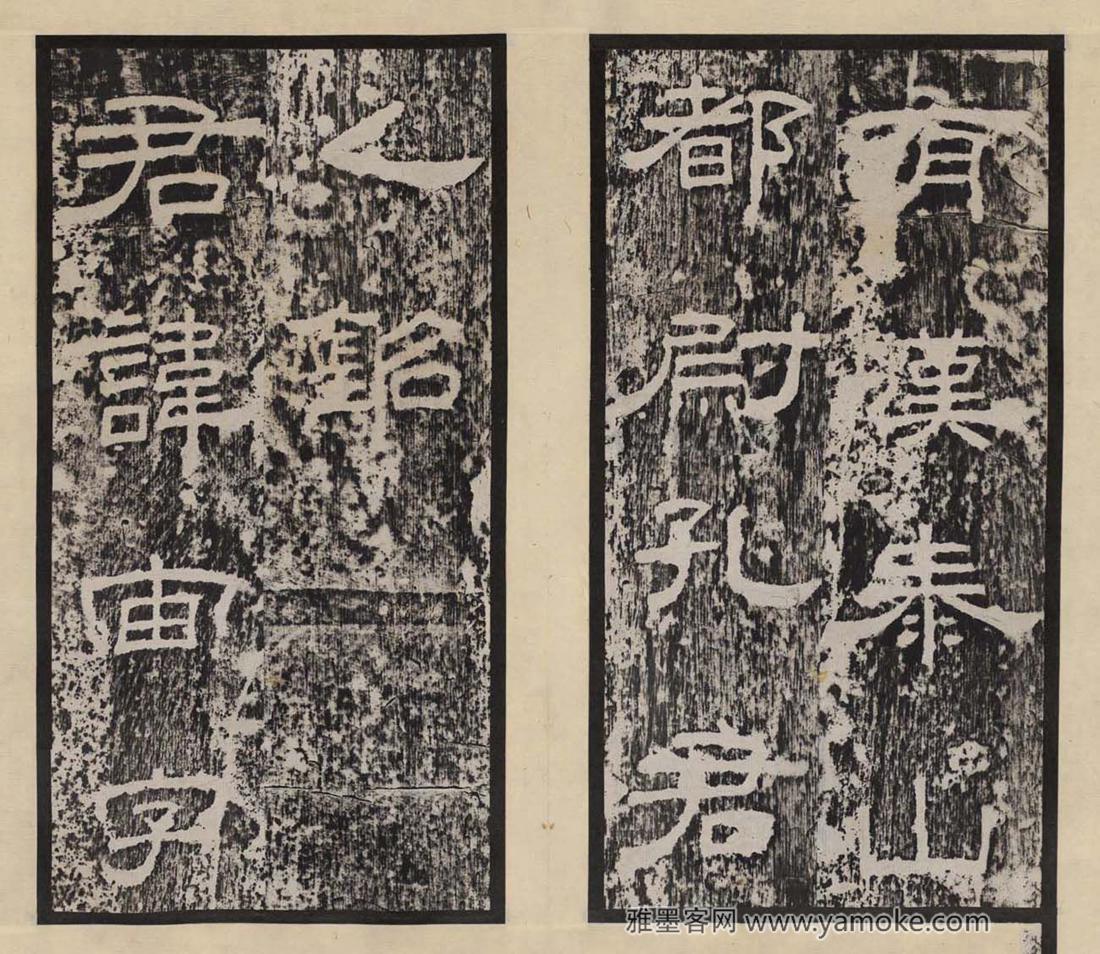 有漢泰山
都尉孔君
之銘
君諱宙字
雅墨客网 www.yamoke.com